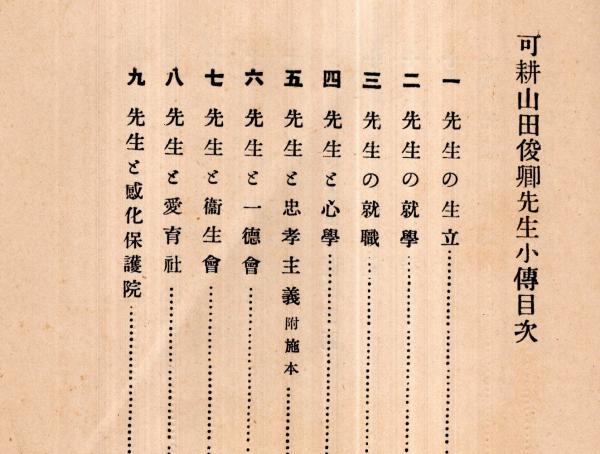 可耕山田俊卿先生小傳目次
一 先生の生立
二 先生の就學
三 先生の就職
四 先生と心學
五 先生と忠孝主義附施本
六 先生と一德會
七 先生と衞生會
八 先生と愛育社
九 先生と感化保護院